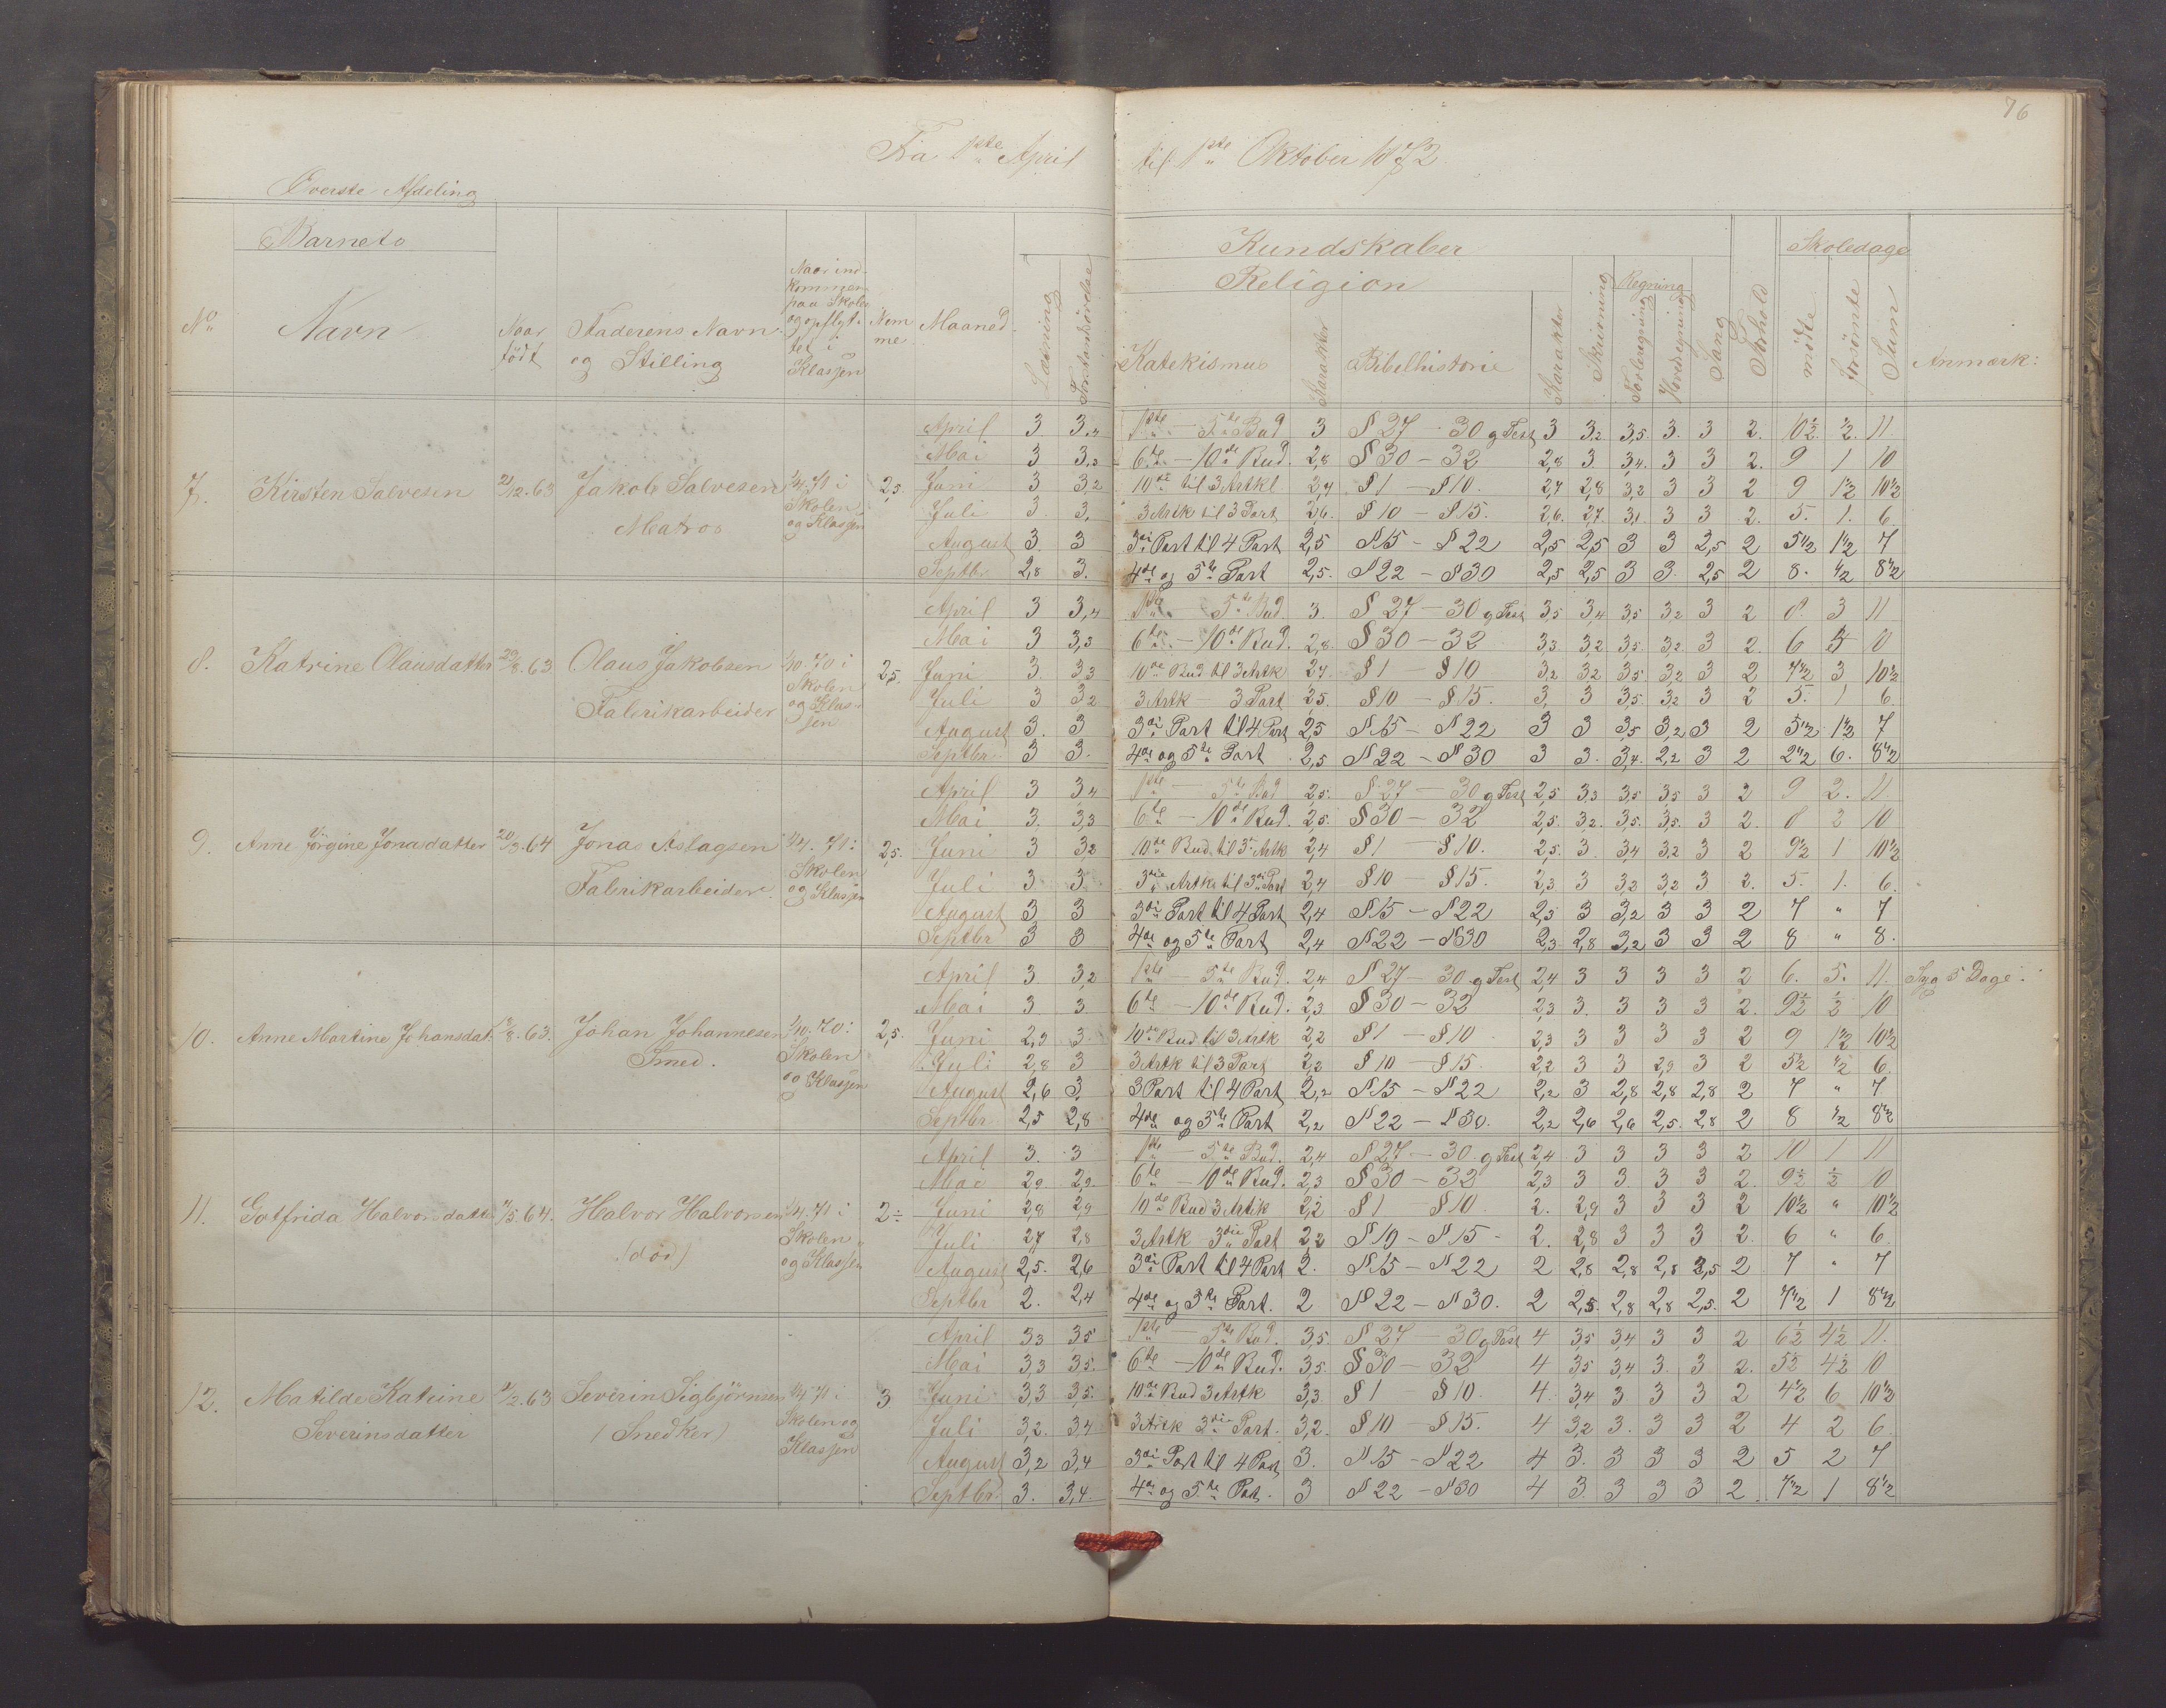 76
Fra 1ste April til 1ste Oktober 1872
Øverste Afdeling
Barnets
Kundskaber
Skoledage
Religion
Regning
No Navn Naar født Faderens Navn og Stilling Naar indkommen paa Skolen og opflyttet i Klassen Nemme Maaned Læsning Forstandsøvelse Katekismus Karakter Bibelhistorie Karakter Skrivning Tavleregning Hovedregning Sang Forhold mødte forsømte Sum Anmærk:
7. Kirsten Salvesen 21/12.63 Jakob Salvesen Matros 1/4.71 i Skolen og Klassen 2,5
April 3 3,4 1ste — 5te Bud 3 § 27 - 30 g Test 3 3,2 3,5 3. 3 2. 10½ ½ 11
Mai 3 3,3 6te — 10de Bud. 2,8 § 30 — 32 2,8 3. 3,4. 3 3 2. 9 1 10
Juni 3 3,2 10de til 3 Artkl 2,7 § 1 — § 10. 2,7 2,8 3,2 3 3 2 9 1½ 10½
Juli 3. 3, 3 Artk til 3 Part 2,6. § 10 — § 15. 2,6. 2,7. 3,1. 3 3 2. 5. 1. 6
August 3. 3 3die Part til 4 Part 2,5 § 15 - § 22 2,5 2,5 3 3 2,5 2 5½ 1½ 7
Septbr 2,8 3. 4de og 5te Part 2,5. § 22 - § 30 2,5 2,5 3 3. 2,5 2 8. ½ 8½
8. Katrine Olausdatter 29/8.63 Olaus Jakobsen Fabrikarbeider 1/10.70 i Skolen og Klassen 2,5
April 3 3,4 1ste 5te Bud 3. § 27 — 30 g Test 3,5 3,4 3,5 3,2 3 2 8 3 11
Mai 3 3,3 6te — 10de Bud. 2,8. § 30 — 32 3,3 3,2 3,5 3,2 3 2. 6 4 10
Juni 3. 3,3 10de Bud til 3 Artk 2,7. § 1 § 10 3,2 3,2 3,5 3,2 3 2 7½ 3 10½
Juli 3 3,2 3 Artk — 3 Part 2,5. § 10 — § 15. 3, 3 3,5. 3,2 3 2 5. 1 6.
August 3. 3 3die Part til 4 Part 2,5 § 15 - § 22 3 3 3,5 3,2 3 2 5½ 1½ 7
Septbr. 3 3. 4de og 5te Part 2,5 § 22 - § 30 3 3. 3,4. 2,2 3 2 2½ 6. 8½
9. Anne Jörgine Jonasdatter 20/3.64 Jonas Aslagsen Fabrikarbeider. 1/4.71 i Skolen og Klassen 2,5.
April 3 3,4 1ste — 5te Bud 2,5. § 27 — 30 g Test 2,5 3,3 3,5 3,5 3 2 9 2. 11
Mai 3. 3,3 6te — 10de Bud. 2,5. § 30 — 32 2,5. 3,2. 3,5. 3,5. 3 2. 8 2 10
Juni 3 3,2 10de Bud til 3 Artk 2,4 § 1 — § 10. 2,5. 3. 3,4 3,2 3 2 9½ 1 10½
Juli 3. 3 3die Artk til 3die Part 2,4 § 10 — § 15. 2,3 3 3,2 3,2 3 2. 5. 1. 6.
August 3 3 3die Part til 4 Part 2,4 § 15 — § 22 2,5 3 3,2 3 3 2 7 " 7
Septbr 3 3 4de og 5te Part 2,4 § 22 — § 30 2,3 2,8 3,2 3 3 2 8 " 8.
10. Anne Martine Johansdat. /8.63. Johan Johannesen Smed. 1/10.70 i Skolen og Klassen 2,5.
April 3. 3,2 1ste — 5te Bud. 2,4 § 27 — 30 g Test 2,4 3 3 3 3 2 6. 5. 11. Syg 5 Dage.
Mai 3 3. 6te — 10de Bud. 2,3 § 30 — 32 2,3 3. 3 3 3 2. 9½ ½ 10
Juni 2,9 3. 10de Bud til 3 Artk 2,2 § 1 — § 10 2,3 3 3 3 3 2 9 1½ 10½
Juli 2,8 3 3 Artk til 3 Part 2,2 § 10 — § 15 2,2 3 3 2,9 3 2 5½ ½ 6.
August 2,6 3. 3 Part til 4 Part 2,2 § 15 — § 22 2,2 3 2,8 2,8 2,8 2 7 " 7
Septbr 2,5 2,8 4de og 5te Part 2,2 § 22 — § 30. 2,2 2,6 2,6 2,5. 2,8 2 8 ½ 8½
11. Gotfrida Halvorsdatter /5.64. Halvor Halvorsen (död) 1/4.71 i Skolen og Klassen 2÷
April 3. 3 1ste — 5te Bud. 2,4 § 27 — 30. g Test 2,4 3 3 3 3 2 10 1 11
Mai 2,9 2,9. 6te — 10de Bud. 2,3 § 30 — 32 2,3 3 3. 3 3 2. 9½ ½ 10
Juni 2,8 2,9 10de Bud 3 Artik 2,2 § 1 § 10 2. 2,9 3 3 3 2 10½ " 10½
Juli 2,7 2,8 3 Artk 3die Part 2,2 § 10 - § 15 - 2. 2,8 3 3 3 2. 6 " 6
August 2,5. 2,6 3die Part til 4 Part 2. § 15 - § 22 2 2,8 2,8 2,8 2,5 2 7 " 7
Septbr 2. 2,4 4de og 5te Part. 2 § 22 — § 30. 2 2,5. 2,8 2,8 2,5. 2 7½ 1 8½
12. Matilde Katrine Severinsdatter /2.63 Severin Sigbjörnsen (Snedker) 1/4.71 i Skolen og Klassen 3
April 3,3 3,5 1ste — 5te Bud. 3,5. § 27 — 30 g Test 4 3,5 3,4 3 3 2 6½ 4½ 11.
Mai 3,3 3,5. 6te — 10de Bud. 3,5. § 30 — 32 4 3,5 3,4 3. 3 2. 5½ 4½ 10
Juni 3,3 3,5. 10de Bud 3 Artk 3,3 § 1 § 10. 4. 3,4 3 3 3 2 4½ 6 10½
Juli 3,2. 3,4 3 Artk 3die Part. 3,2. § 10 — § 15. 4 3,2 3. 3 3 2 4 2 6
August 3,2 3,4 3die Part til 4 Part 3. § 15 - § 22 4 3. 3 3 3 2 5 2 7
Septbr. 3. 3,4. 4de og 5te Part. 3 § 22 — § 30 4 3. 3 3 3 2. 7½ 1 8½